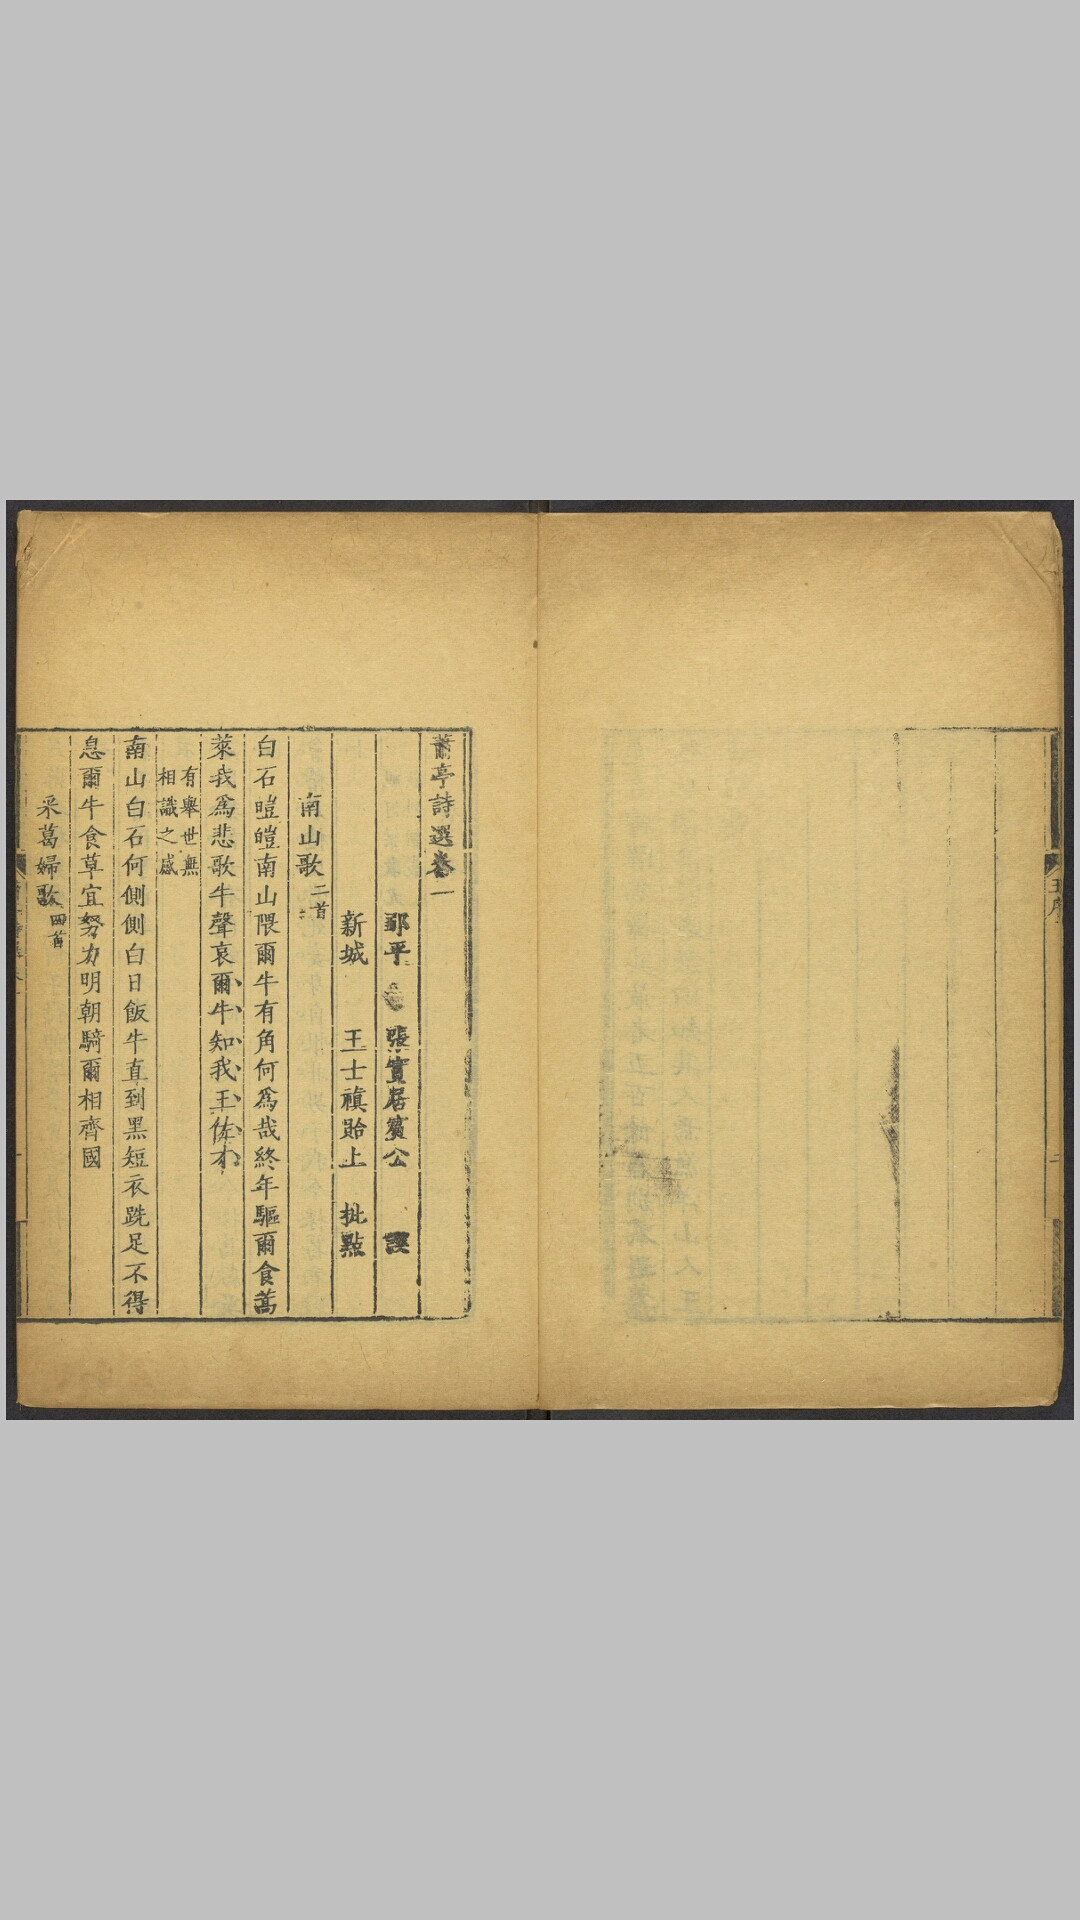 蕭亭詩選卷一
鄒平 張實居賓公 譔
新城 王士禛貽上 批點
南山歌二首
白石皚皚南山隈爾牛有角何爲哉終年驅爾食蒿
萊我爲悲歌牛聲哀爾牛知我王佐才
有舉世無
相識之感
南山白石何側側白日飯牛直到黑短衣跣足不得
息爾牛食草宜努力明朝騎爾相齊國
采葛婦歌四首
王序
二